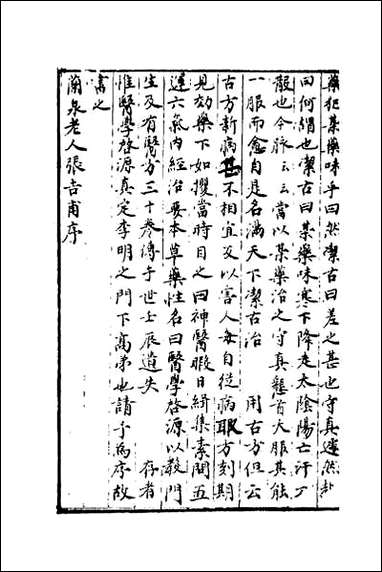 藥犯某藥味乎曰然潔古曰差之甚也守真遽然卦
曰何謂也潔古曰某藥味寒下降走太陰陽亡汗了
骰也今脉云云當以某藥治之守真懸首大服其能
一服而愈自是名滿天下潔古治 用古方但云
古方新病甚不相宜反以害人每自從病眼方刻期
見効藥下如攫當時目之曰神醫暇日緝集素問五
運六氣內經治要本草藥性名曰醫學啓源以教門
生及有醫方三十卷傳于世壬辰遺失 存者
惟醫學啓源真定李明之門下高弟也請予為序故
書之
蘭泉老人張吉甫序